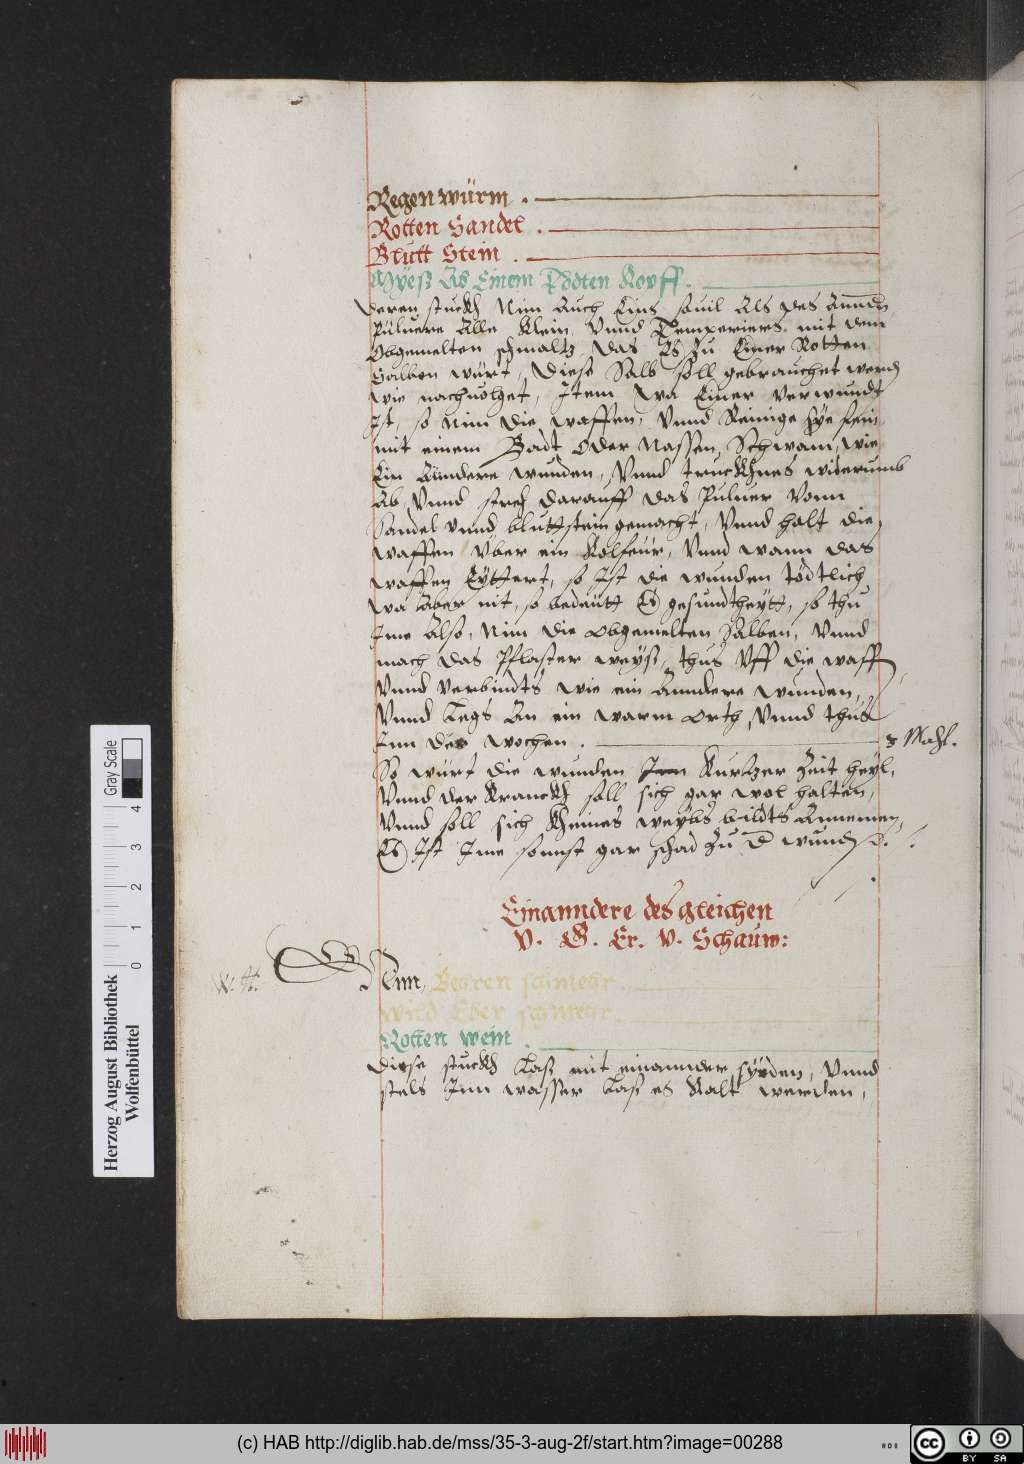 Regen würm .
Rotten Sandel .
Blutt Stein .
Myeß Ab Einem Todten Kopff .
Deren stuckh Nim Auch Eins sovil Als des Anndern
Puluere Alle Klein Vnnd Temperiers mit dem
Obgemelten schmaltz das Es Zu Einer Rotten
Salben würt, Diese Salb soll gebrauchet werd
wie nachuolget, Item wa Einer verwundt
Ist, so Nim die waffen, Vnnd Reinige sye fein
mit einem Badt Oder Nassen Schwam, wie
Ein Anndere wunden, Vnnd truckhnes widerumb
Ab Vnnd strey darauff das Puluer Vonn
Sandel Vnnd bluttstein gemacht, Vnnd halt die
waffen Vber ein Kolfeür, Vnnd wann das
waffen Eyttert, so Ist die wunden tödtlich
wa Aber nit, so bedeütt Es gesundtheytt, so thu
Ime Also, Nim die Obgemelten Salben, Vnnd
mach das Pflaster weyß, thus Vff die waff
Vnnd verbindts wie ein Anndere wunden,
Vnnd Legs An ein warm Orth, Vnnd thus
Inn der wochen . 3 Mahl.
So würt die wunden Inn Kurtzer Zeit heyl,
Vnnd der Kranckh soll sich gar wol halten,
Vnnd soll sich Kheines weybs bildts Annemen,
Es Ist Ime sonnst gar schad Zu d wunden
Ein anndere des gleichen
V. G. Er. V. Schaum:
Nim, Behren schmehr .
Wild Eber schmehr .
Rotten wein .
Diese stuckh Laß mit einannder syeden, Vnnd
stels Inn wasser Laß es Kalt werden,
Gray Scale
0 1 2 3 4
Herzog August Bibliothek
Wolfenbüttel
(c) HAB http://diglib.hab.de/mss/35-3-aug-2f/start.htm?image=00288
cc BY SA